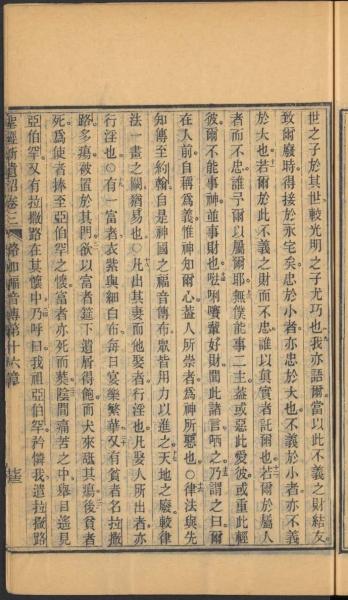 世之子於其世較光明之子尤巧也我亦語爾當以此不義之財結友
致爾廢時得接於永宅矣忠於小者亦忠於大也不義於小者亦不義
於大也若爾於此不義之財而不忠誰以眞實者託爾也若爾於屬人
者而不忠誰予爾以屬爾耶無僕能事二主蓋或惡此愛彼或重此輕
彼爾不能事神並事財也𠵽唎㘔輩好財聞此諸言哂之乃謂之曰爾
在人前自稱爲義惟神知爾心蓋人所崇者爲神所惡也〇律法與先
知傳至約翰自是神國之福音傳布眾皆用力以進之天地之廢較律
法一畫之闕猶易也〇凡出其妻而他娶者行淫也凡娶人所出者亦
行淫也〇有一富者衣紫與細白布每日宴樂繁華又有貧者名拉撒
路多瘍被置於其門欲以富者筵下遺屑得飽而犬來䑛其瘍後貧者
死爲使者捧至亞伯罕之懷富者亦死而葬陰間痛苦之中舉目遙見
亞伯罕又有拉撒路在其懷中乃呼曰我祖亞伯罕矜憐我遣拉撒路
聖經新遺詔 卷三 路加福音傳第十六章